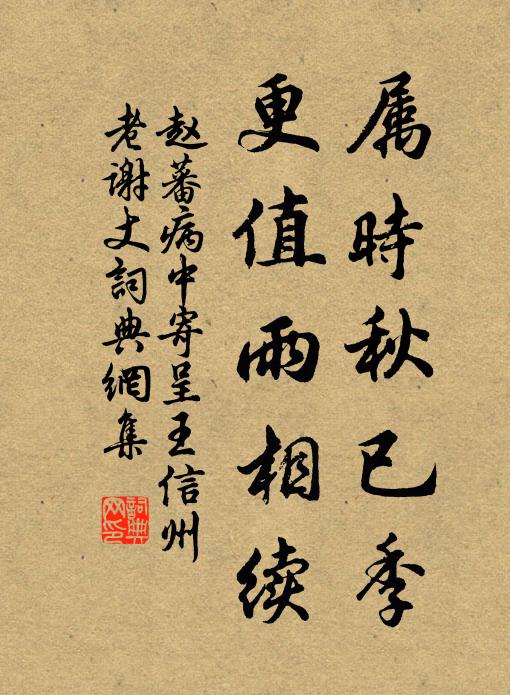 属時秋已季
更值雨相续
赵蕃病中寄呈王信州
老谢丈詞典網集
詞典网印